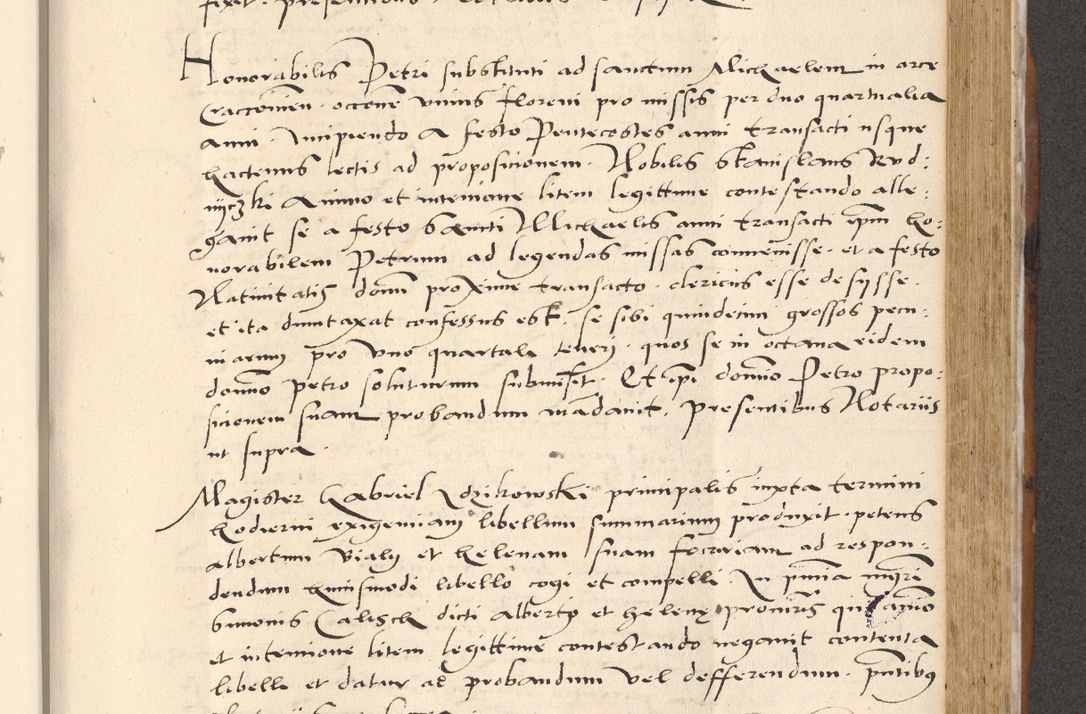 Honorabilis Petri substituti ad sanctum Michaelem in arce
Cracovien. occone̅ unius floreni pro missis per duo quartualia
anni. Incipiendo a festo Pentecostes anni transacti usque
hactenus lectis ad propositionem. Nobilis Stanislaus Rud:
niczki Animo et intencione litem legittime contestando alle:
gavit se a festo Sancti Michaelis anni transacti ip̅m ho:
norabilem Petrum ad legendas missas convenisse. et a festo
Nativitatis domi̅ proxime transacto. clericus esse desysse.
et ita duntaxat confessus est. se sibi quindecim grossos pecu:
niarum pro uno quartali teneri. quos se in octava eidem
dom̅o Petro soluturum submisit. Et ip̅i domi̅o Petro propo:
sicionem suam probandum ma̅davit. Presentibus Notariis
ut supra.
Magister Gabriel Idzikowski principalis iuxta termini
hodierni exigenciam libellum summarium produxit. petens
Albertum Vialy et Helenam suam focariam ad respon:
dendum huiusmodi libello cogi et compelli. In pn̅tia mgri̅
Simonis Calisch dicti Alberti et Helenę procur̅is qui animo
et intencione litem legittime contestando negavit contenta
libelli et datur ad probandum vel defferendum. pn̅tibus